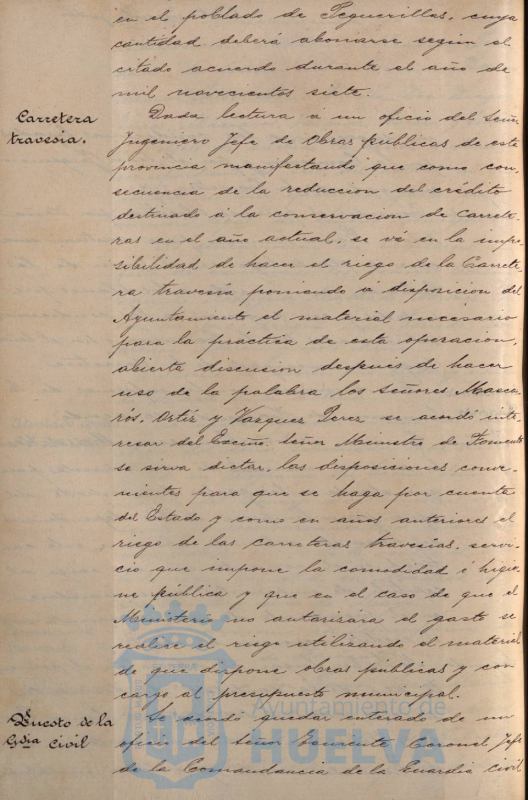 en el poblado de Peguerillas, cuya
cantidad deberá abonarse segun el
citado acuerdo durante el año de
mil novecientos siete.
Carretera
travesia.
Dada lectura á un oficio del Señor
Ingeniero Jefe de Obras públicas de esta
provincia manifestando que como con
secuencia de la reduccion del crédito
destinado á la conservacion de carrete
ras en el año actual, se vé en la impo
sibilidad de hacer el riego de la Carrete
ra travesía poniendo á disposicion del
Ayuntamiento el material necesario
para la práctica de esta operacion,
abierta discusion despues de hacer
uso de la palabra los señores Masca
rós, Ortiz y Vazquez Perez se acordó inte
resar del Excmo. Señor Ministro de Fomento
se sirva dictar las disposiciones conve
nientes para que se haga por cuenta
del Estado y como en años anteriores el
riego de las carreteras travesías, servi
cio que impone la comodidad é higie
ne pública y que en el caso de que el
Ministerio no autorizara el gasto se
realice el riego utilizando el material
de que dispone obras públicas y con
cargo al presupuesto municipal.
Puesto de la
Gdia Civil
Se acordó quedar enterado de un
oficio del Señor Teniente Coronel Jefe
de la Comandancia de la Guardia Civil
Ayuntamiento de
HUELVA